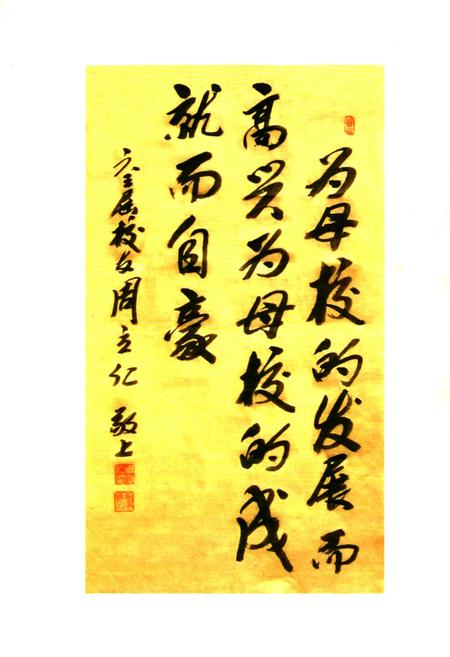 为母校的发展而
高兴为母校的成
就而自豪
六三届校友周立仁 敬上